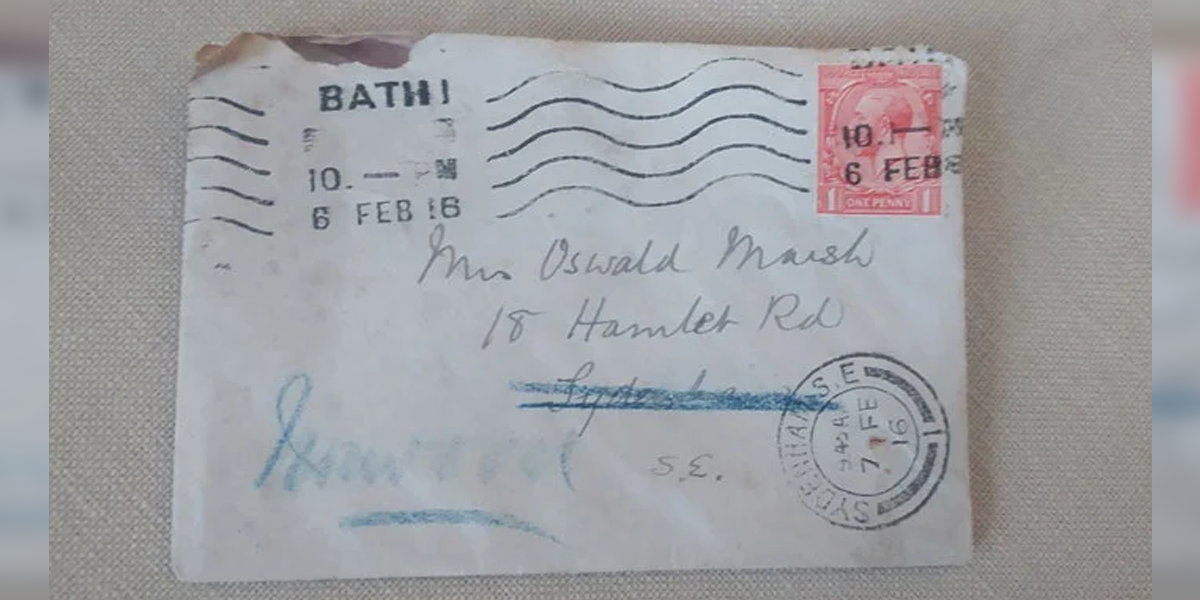 BATH 1
10. —
10. — AM
6 FEB
6 FEB 16
1 ONE PENNY 1
Mrs Oswald Marsh
18 Hamlet Rd
Sydenham
S.E.
SYDENHAM S.E
9 45 A
7 FE
16
1